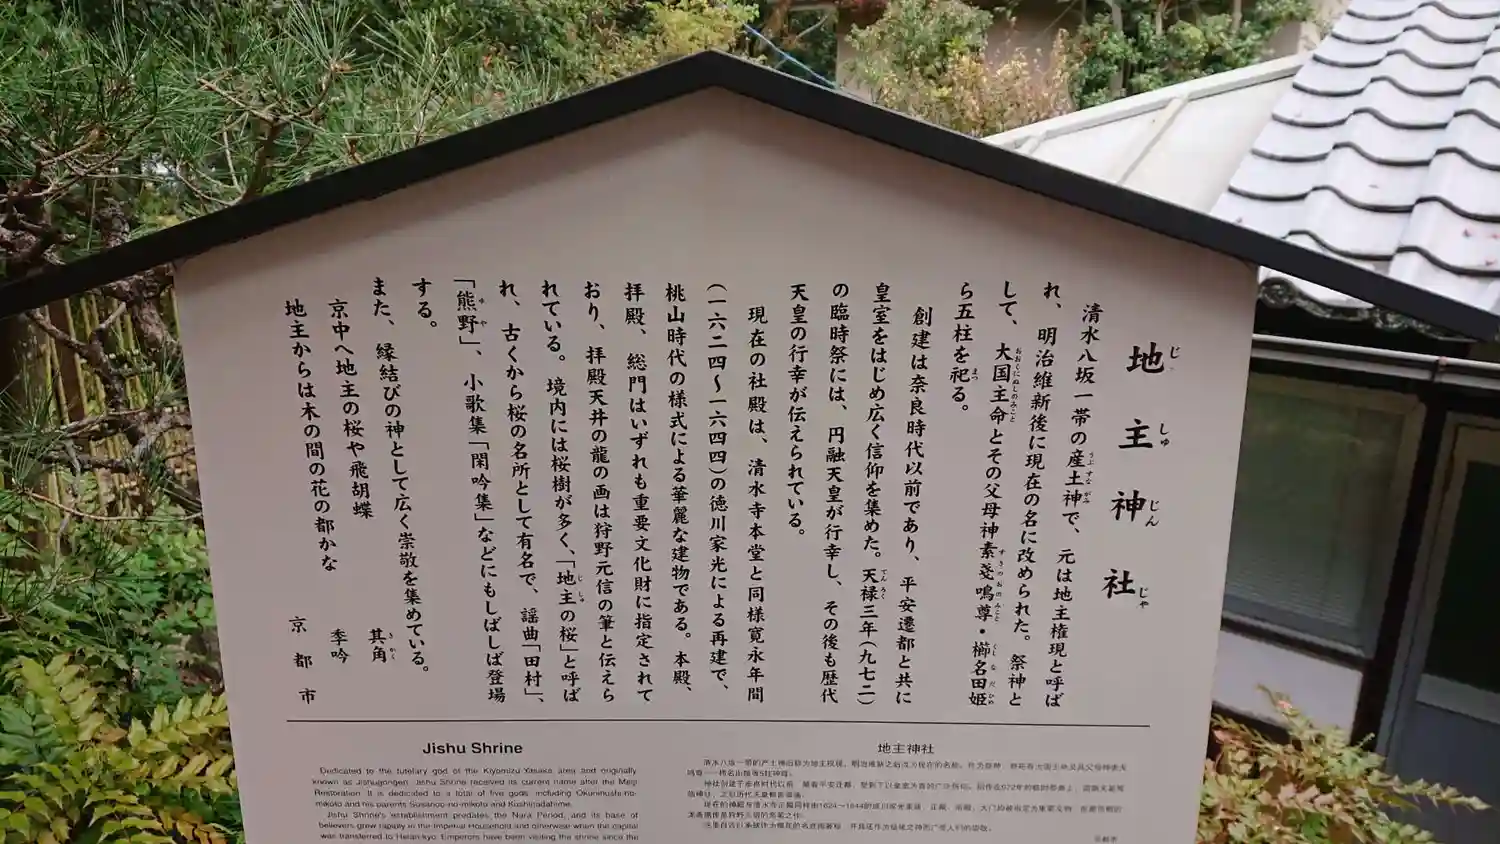 地主神社
じしゅじんじゃ
清水八坂一帯の産土神で、元は地主権現と呼ば
うぶすながみ
れ、明治維新後に現在の名に改められた。祭神と
して、大国主命とその父母神素戔嗚尊・櫛名田姫
おおくにぬしのみこと
すさのおのみこと
くしなだひめ
ら五柱を祀る。
まつ
創建は奈良時代以前であり、平安遷都と共に
皇室をはじめ広く信仰を集めた。天禄三年(九七二)
てんろく
の臨時祭には、円融天皇が行幸し、その後も歴代
天皇の行幸が伝えられている。
現在の社殿は、清水寺本堂と同様寛永年間
(一六二四〜一六四四)の徳川家光による再建で、
桃山時代の様式による華麗な建物である。本殿、
拝殿、総門はいずれも重要文化財に指定されて
おり、拝殿天井の龍の画は狩野元信の筆と伝えら
れている。境内には桜樹が多く、「地主の桜」と呼ば
じしゅ
れ、古くから桜の名所として有名で、謡曲「田村」、
「熊野」、小歌集「閑吟集」などにもしばしば登場
ゆや
する。
また、縁結びの神として広く崇敬を集めている。
京中へ地主の桜や飛胡蝶 其角
きかく
地主からは木の間の花の都かな 季吟
京都市
Jishu Shrine
Dedicated to the tutelary god of the Kiyomizu Yasaka area and originally
known as Jishugongen, Jishu Shrine received its current name after the Meiji
Restoration. It is dedicated to a total of five gods, including Okuninushi-no-
mikoto and his parents Susanoo-no-mikoto and Kushinadahime.
Jishu Shrine's establishment predates the Nara Period, and its base of
believers grew rapidly in the Imperial Household and otherwise when the capital
was transferred to Heian-kyo. Emperors have been visiting the shrine since the
地主神社